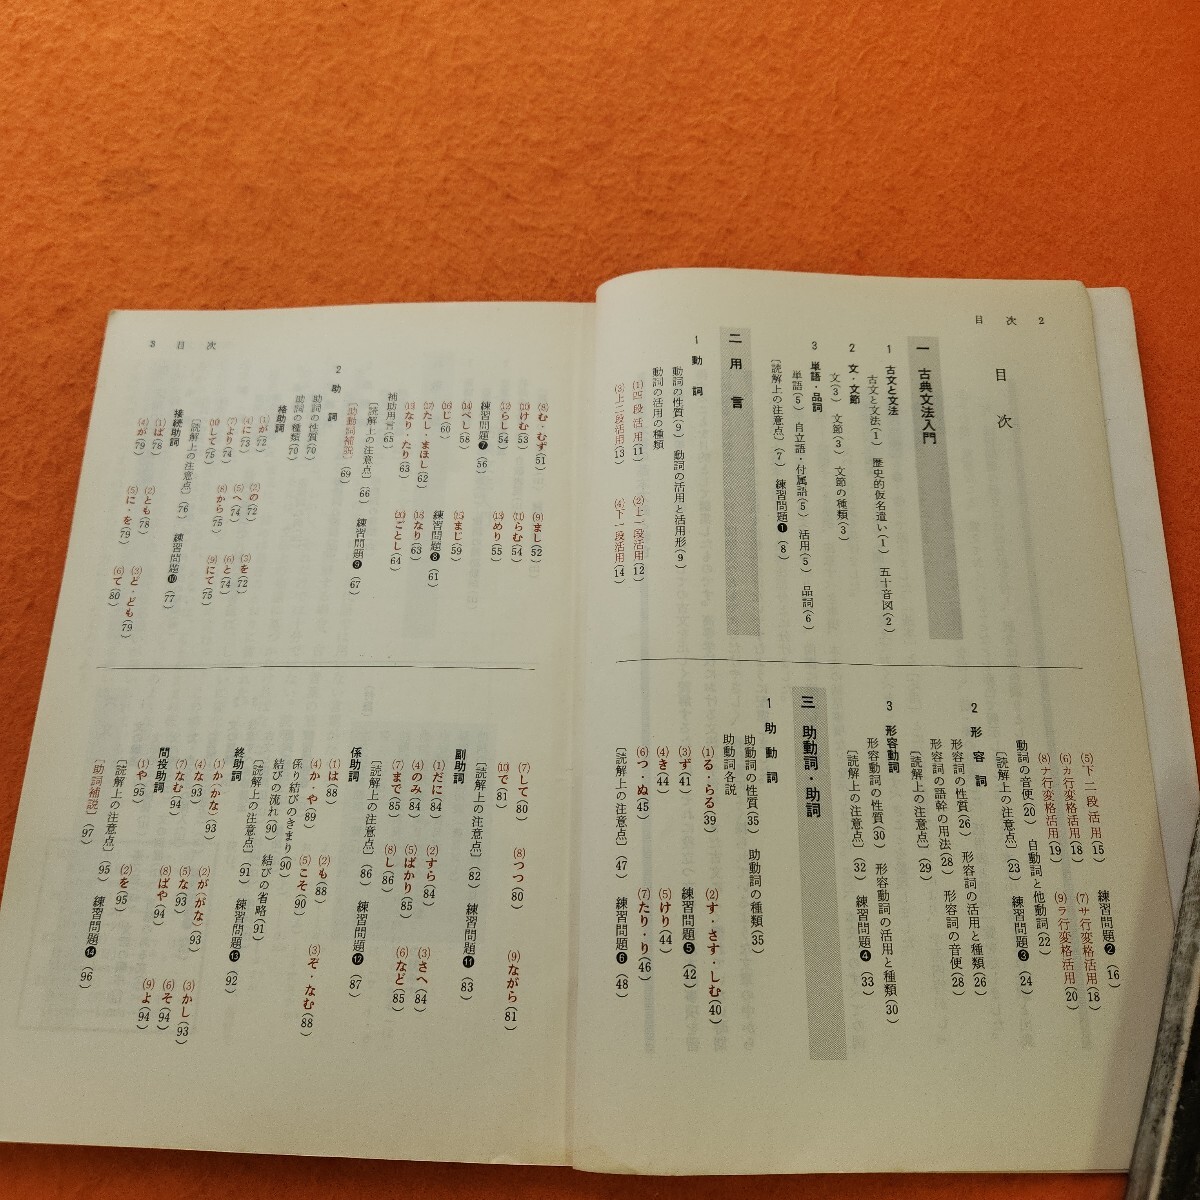 目次 2
目次
一 古典文法入門
1 古文と文法
古文と文法(1) 歴史的仮名遣い(1) 五十音図(2)
2 文・文節
文(3) 文節(3) 文節の種類(3)
3 単語・品詞
単語(5) 自立語・付属語(5) 活用(5) 品詞(6)
〔読解上の注意点〕(7) 練習問題❶(8)
二 用言
1 動詞
動詞の性質(9) 動詞の活用と活用形(9)
動詞の活用の種類
(1)四段活用(11) (2)上一段活用(12)
(3)上二段活用(13) (4)下一段活用(14)
(5)下二段活用(15) 練習問題❷(16)
(6)カ行変格活用(18) (7)サ行変格活用(18)
(8)ナ行変格活用(19) (9)ラ行変格活用(20)
動詞の音便(20) 自動詞と他動詞(22)
〔読解上の注意点〕(23) 練習問題❸(24)
2 形容詞
形容詞の性質(26) 形容詞の活用と種類(26)
形容詞の語幹の用法(28) 形容詞の音便(28)
〔読解上の注意点〕(29)
3 形容動詞
形容動詞の性質(30) 形容動詞の活用と種類(30)
〔読解上の注意点〕(32) 練習問題❹(33)
三 助動詞・助詞
1 助動詞
助動詞の性質(35) 助動詞の種類(35)
助動詞各説
(1)る・らる(39) (2)す・さす・しむ(40)
(3)ず(41) 練習問題❺(42)
(4)き(44) (5)けり(44)
(6)つ・ぬ(45) (7)たり・り(46)
〔読解上の注意点〕(47) 練習問題❻(48)
3 目次
(8)む・むず(51) (9)まし(52)
(10)けむ(53) (11)らむ(54)
(12)らし(54) (13)めり(55)
練習問題❼(56)
(14)べし(58) (15)まじ(59)
(16)じ(60) 練習問題❽(61)
(17)たし・まほし(62) (18)なり(63)
(19)なり・たり(63) (20)ごとし(64)
補助用言(65)
〔読解上の注意点〕(66) 練習問題❾(67)
〔助動詞補説〕(69)
2 助詞
助詞の性質(70)
助詞の種類(70)
格助詞
(1)が(72) (2)の(72) (3)を(72)
(4)に(73) (5)へ(74) (6)と(74)
(7)より(74) (8)から(75) (9)にて(75)
(10)して(75)
〔読解上の注意点〕(76) 練習問題❿(77)
接続助詞
(1)ば(78) (2)とも(78) (3)ど・ども(79)
(4)が(79) (5)に・を(79) (6)て(80)
(7)して(80) (8)つつ(80) (9)ながら(81)
(10)で(81)
〔読解上の注意点〕(82) 練習問題⓫(83)
副助詞
(1)だに(84) (2)すら(84) (3)さへ(84)
(4)のみ(84) (5)ばかり(85) (6)など(85)
(7)まで(85) (8)し(86)
〔読解上の注意点〕(86) 練習問題⓬(87)
係助詞
(1)は(88) (2)も(88) (3)ぞ・なむ(88)
(4)か・や(89) (5)こそ(90)
係り結びのきまり(90)
結びの流れ(90) 結びの省略(91)
〔読解上の注意点〕(91) 練習問題⓭(92)
終助詞
(1)か(かな)(93) (2)が(がな)(93) (3)かし(93)
(4)な(93) (5)な(93) (6)そ(94)
(7)なむ(94) (8)ばや(94) (9)よ(94)
間投助詞
(1)や(95) (2)を(95)
〔読解上の注意点〕(95) 練習問題⓮(96)
〔助詞補説〕(97)